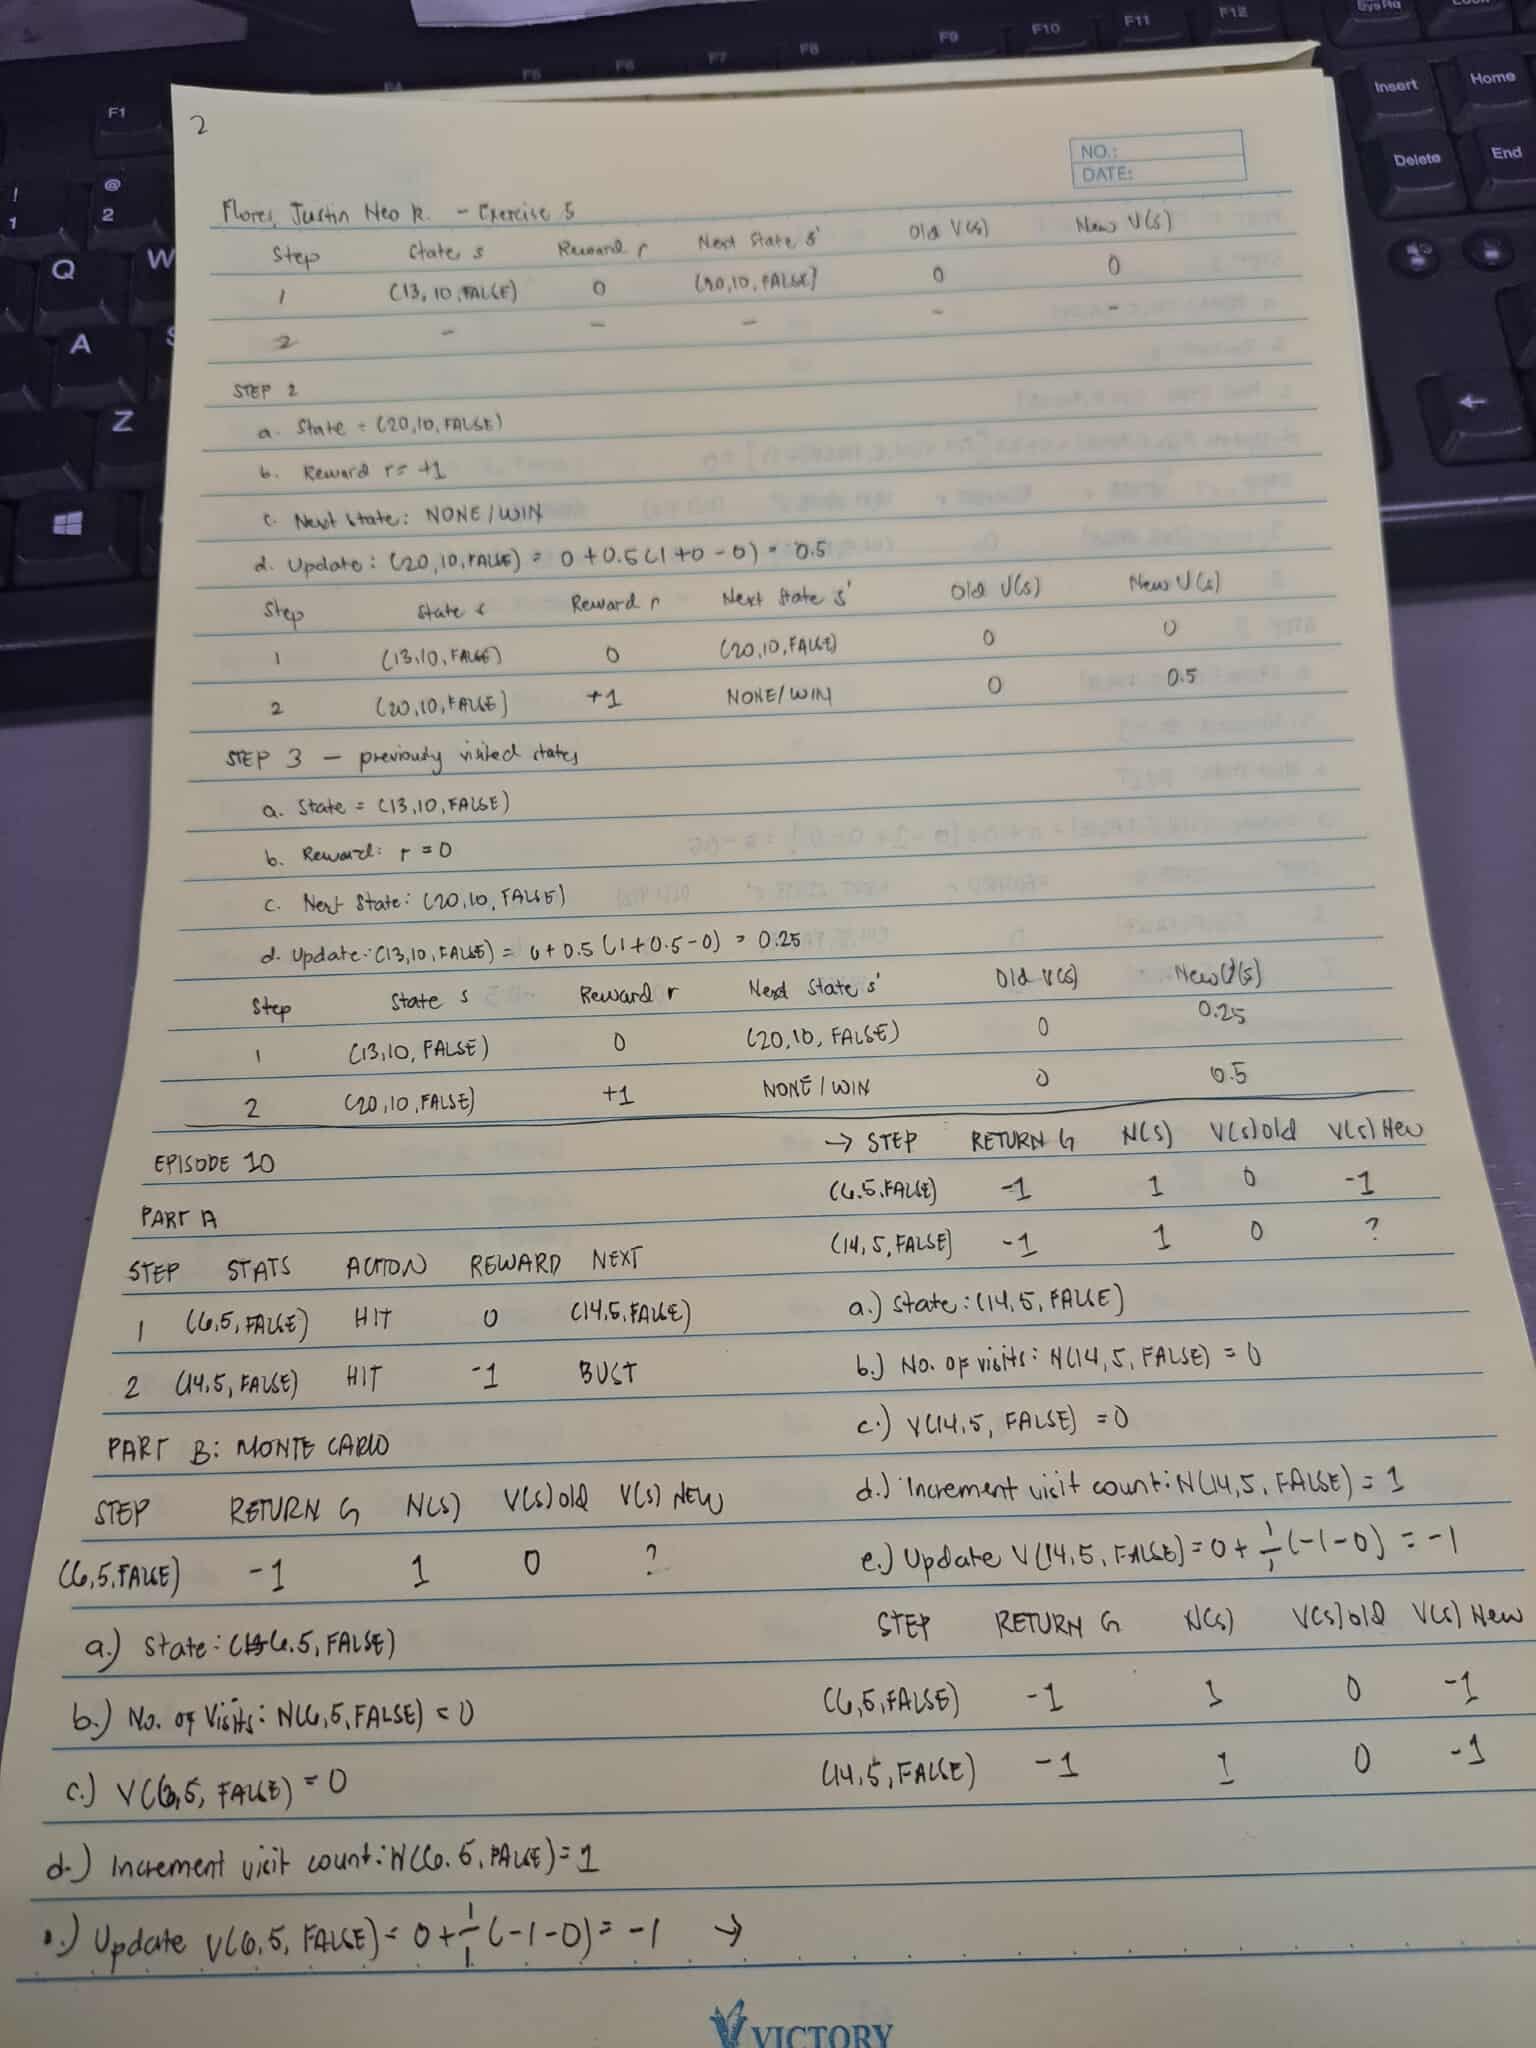 2
NO.:
DATE:
Flores, Justin Neo R. - Exercise 5
Step State s Reward r Next State s' Old V(s) New V(s)
1 (13, 10, FALSE) 0 (20,10, FALSE) 0 0
2 - - - - -
STEP 2
a. State = (20,10, FALSE)
b. Reward r = +1
c. Next State: NONE/WIN
d. Update: (20,10,FALSE) = 0 + 0.5 (1+0-0) = 0.5
Step State s Reward r Next State s' Old V(s) New V(s)
1 (13,10, FALSE) 0 (20,10,FALSE) 0 0
2 (20,10,FALSE) +1 NONE/WIN 0 0.5
STEP 3 - previously visited states
a. State = (13,10,FALSE)
b. Reward: r = 0
c. Next State: (20,10, FALSE)
d. Update: (13,10,FALSE) = 0 + 0.5 (1+0.5-0) = 0.25
Step State s Reward r Next State s' Old V(s) New V(s)
1 (13,10, FALSE) 0 (20,10, FALSE) 0 0.25
2 (20,10,FALSE) +1 NONE/WIN 0 0.5
EPISODE 10
PART A
STEP STATS ACTION REWARD NEXT
1 (6,5, FALSE) HIT 0 (14,5,FALSE)
2 (14,5, FALSE) HIT -1 BUST
PART B: MONTE CARLO
STEP RETURN G N(S) V(s) old V(s) NEW
(6,5,FALSE) -1 1 0 ?
a.) State: (6,5, FALSE)
b.) No. of Visits: N(6,5,FALSE) = 0
c.) V(6,5, FALSE) = 0
d.) Increment visit count: N(6,5,FALSE) = 1
e.) Update V(6,5, FALSE) = 0 + 1/1 (-1-0) = -1 →
→ STEP RETURN G N(S) V(s) old V(s) New
(6,5,FALSE) -1 1 0 -1
(14,5,FALSE) -1 1 0 ?
a.) State: (14,5,FALSE)
b.) No. of visits: N(14,5, FALSE) = 0
c.) V(14,5, FALSE) = 0
d.) Increment visit count: N(14,5, FALSE) = 1
e.) Update V(14,5, FALSE) = 0 + 1/1 (-1-0) = -1
STEP RETURN G N(s) V(s) old V(s) New
(6,5,FALSE) -1 1 0 -1
(14,5,FALSE) -1 1 0 -1
VICTORY
F1
F7
F8
F9
F10
F11
F12
Insert
Home
Delete
End
!
1
@
2
Q
W
A
Z